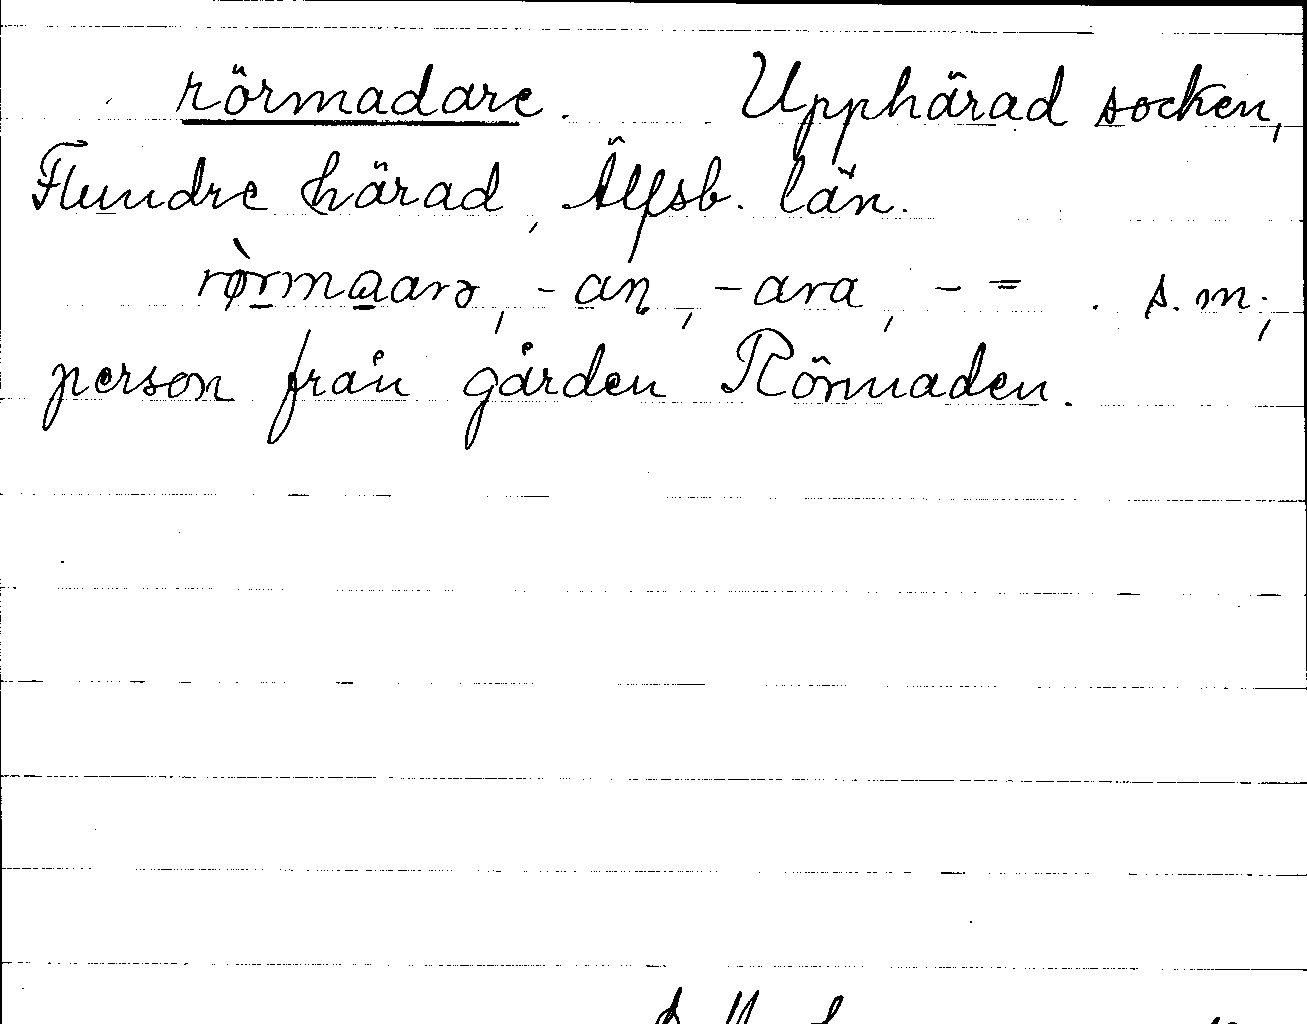 rörmadare. Upphärad socken,
Flundre härad, Älfsb. län.
rø̀rmaarə, -an, -ara, - = . s.m;
person från gården Rörmaden.